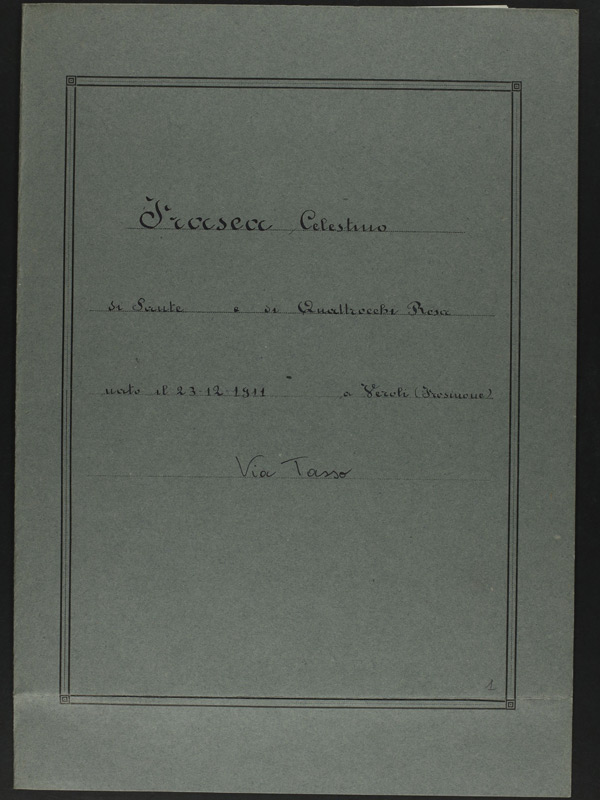 Frasca Celestino
di Sante e di Quattrocchi Rosa
nato il 23-12-1911 a Veroli (Frosinone)
Via Tasso
1